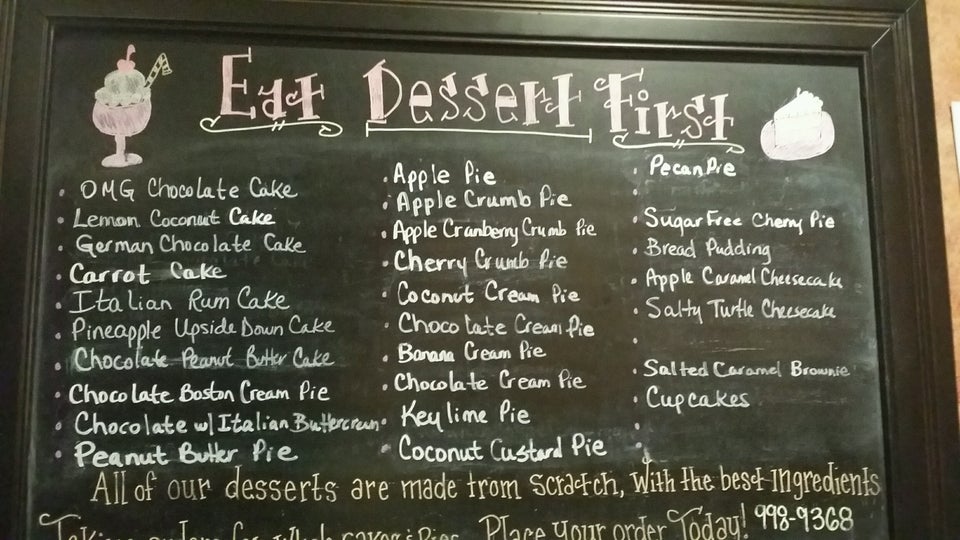 Eat Dessert First
• OMG Chocolate Cake
• Lemon Coconut Cake
• German Chocolate Cake
• Carrot Cake
• Italian Rum Cake
• Pineapple Upside Down Cake
• Chocolate Peanut Butter Cake
• Chocolate Boston Cream Pie
• Chocolate w/ Italian Buttercream
• Peanut Butter Pie
• Apple Pie
• Apple Crumb Pie
• Apple Cranberry Crumb Pie
• Cherry Crumb Pie
• Coconut Cream Pie
• Chocolate Cream Pie
• Banana Cream Pie
• Chocolate Cream Pie
• Key lime Pie
• Coconut Custard Pie
• Pecan Pie
•
• Sugar Free Cherry Pie
• Bread Pudding
• Apple Caramel Cheesecake
• Salty Turtle Cheesecake
•
• Salted Caramel Brownie
• Cupcakes
•
•
All of our desserts are made from scratch, with the best ingredients
Taking orders for whole cakes & Pies. Place your order Today! 998-9368